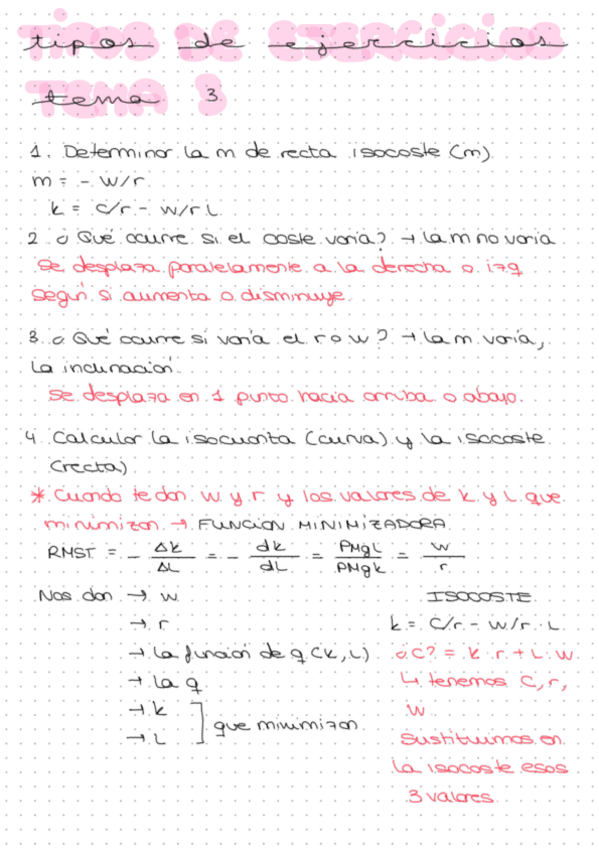 tipos de ejercicios
tema 3
1. Determinar la m de recta isocoste (m)
m = - w/r
k = c/r - w/r L
2 ¿Qué ocurre si el coste varía? → la m no varía
Se desplaza paralelamente a la derecha o izq
según si aumenta o disminuye
3. ¿Qué ocurre si varía el r o w? → la m varía,
la inclinación.
Se desplaza en 1 punto hacia arriba o abajo.
4. Calcular la isocuanta (curva) y la isocoste
(recta)
* Cuando te dan w y r y los valores de k y L que
minimizan → FUNCIÓN MINIMIZADORA
RMST = - Δk/ΔL = - dk/dL = PMgL/PMgk = w/r
Nos dan → w
→ r
→ la función de q (k, L)
→ la q
→ k
→ L
] que minimizan
ISOCOSTE
k = C/r - w/r · L
¿C? = k · r + L · w
↳ tenemos C, r,
w
Sustituimos en
la isocoste esos
3 valores